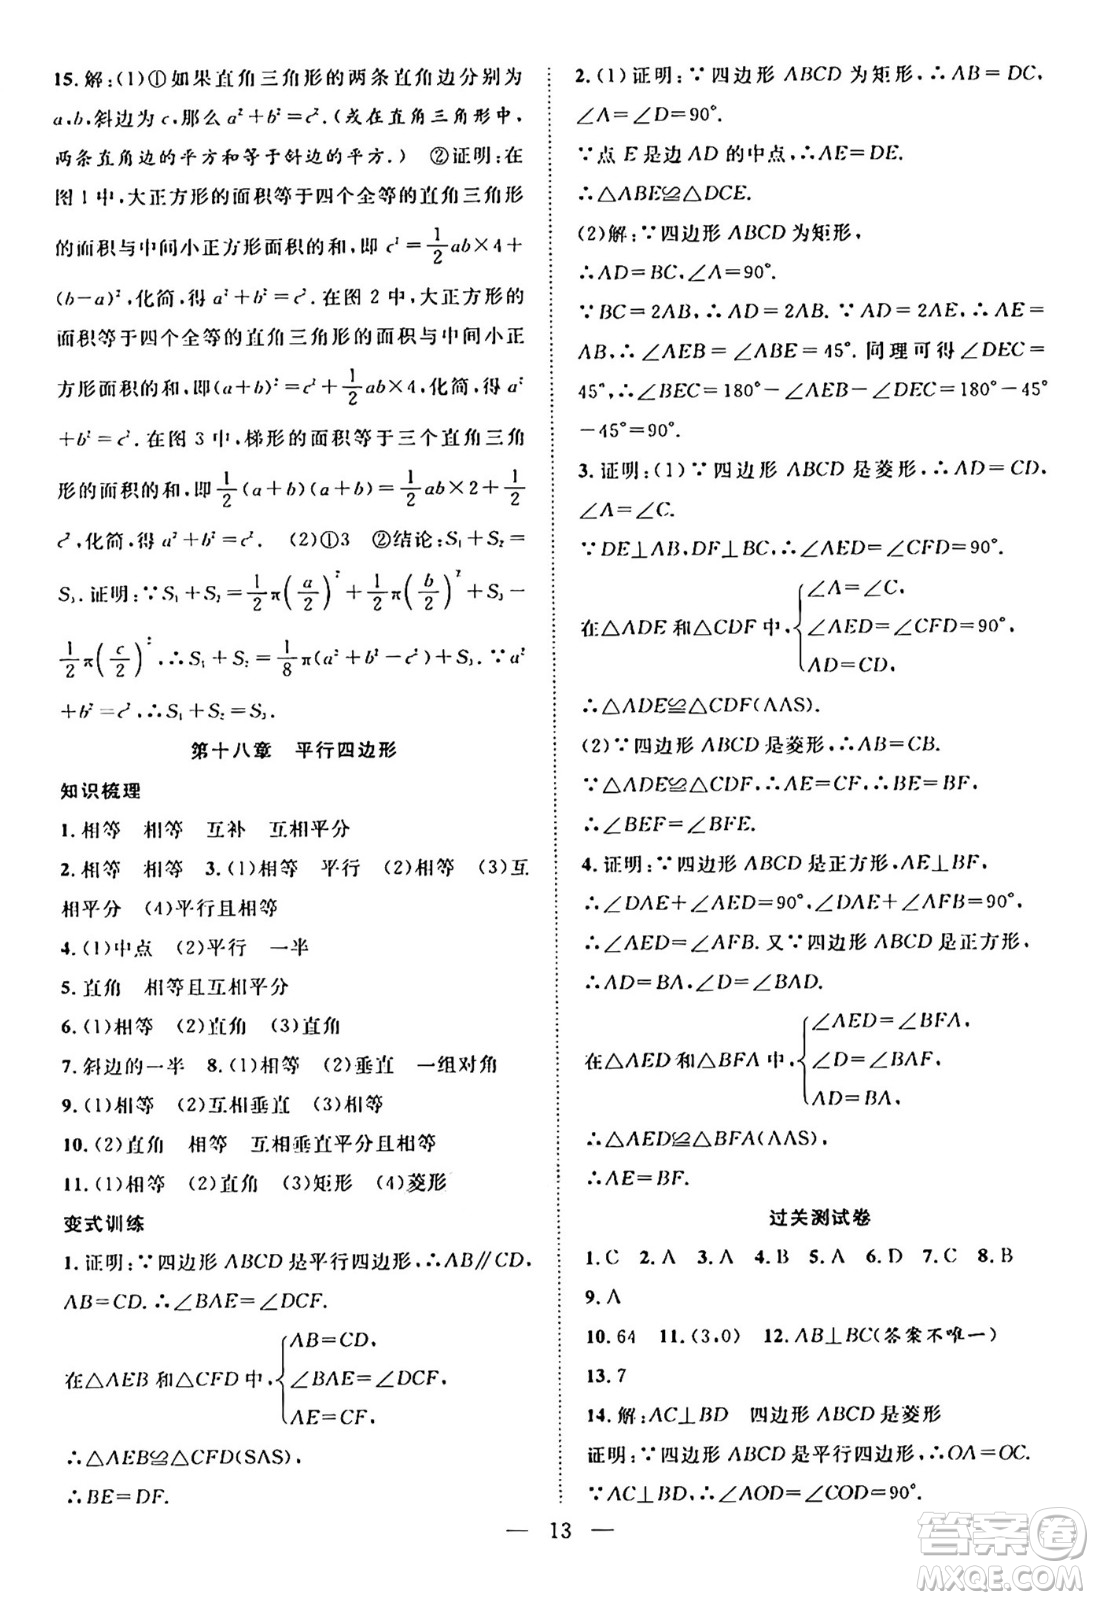 15.解:(1)①如果直角三角形的两条直角边分别为
a,b,斜边为c,那么a²+b²=c².(或在直角三角形中,
两条直角边的平方和等于斜边的平方.) ②证明:在
图1中,大正方形的面积等于四个全等的直角三角形
的面积与中间小正方形面积的和,即c²=1/2ab×4+
(b-a)²,化简,得a²+b²=c².在图2中,大正方形的
面积等于四个全等的直角三角形的面积与中间小正
方形的面积的和,即(a+b)²=c²+1/2ab×4,化简,得a²
+b²=c².在图3中,梯形的面积等于三个直角三角
形的面积的和,即1/2(a+b)(a+b)=1/2ab×2+1/2
c²,化简,得a²+b²=c². (2)①3 ②结论:S₁+S₂=
S₃.证明:∵S₁+S₂=1/2π(a/2)²+1/2π(b/2)²+S₃-
1/2π(c/2)²,∴S₁+S₂=1/8π(a²+b²-c²)+S₃.∵a²
+b²=c²,∴S₁+S₂=S₃.
第十八章 平行四边形
知识梳理
1.相等 相等 互补 互相平分
2.相等 相等 3.(1)相等 平行 (2)相等 (3)互
相平分 (4)平行且相等
4.(1)中点 (2)平行 一半
5.直角 相等且互相平分
6.(1)相等 (2)直角 (3)直角
7.斜边的一半 8.(1)相等 (2)垂直 一组对角
9.(1)相等 (2)互相垂直 (3)相等
10.(2)直角 相等 互相垂直平分且相等
11.(1)相等 (2)直角 (3)矩形 (4)菱形
变式训练
1.证明:∵四边形ABCD是平行四边形,∴AB∥CD,
AB=CD.∴∠BAE=∠DCF.
在△AEB和△CFD中,{AB=CD,
∠BAE=∠DCF,
AE=CF,
∴△AEB≌△CFD(SAS).
∴BE=DF.
2.(1)证明:∵四边形ABCD为矩形,∴AB=DC,
∠A=∠D=90°.
∵点E是边AD的中点,∴AE=DE.
∴△ABE≌△DCE.
(2)解:∵四边形ABCD为矩形,
∴AD=BC,∠A=90°.
∵BC=2AB,∴AD=2AB.∵AD=2AE,∴AE=
AB,∴∠AEB=∠ABE=45°.同理可得∠DEC=
45°,∴∠BEC=180°-∠AEB-∠DEC=180°-45°
-45°=90°.
3.证明:(1)∵四边形ABCD是菱形,∴AD=CD,
∠A=∠C.
∵DE⊥AB,DF⊥BC,∴∠AED=∠CFD=90°.
在△ADE和△CDF中,{∠A=∠C,
∠AED=∠CFD=90°,
AD=CD,
∴△ADE≌△CDF(AAS).
(2)∵四边形ABCD是菱形,∴AB=CB.
∵△ADE≌△CDF,∴AE=CF,∴BE=BF,
∴∠BEF=∠BFE.
4.证明:∵四边形ABCD是正方形,AE⊥BF,
∴∠DAE+∠AED=90°,∠DAE+∠AFB=90°,
∴∠AED=∠AFB.又∵四边形ABCD是正方形,
∴AD=BA,∠D=∠BAD.
在△AED和△BFA中,{∠AED=∠BFA,
∠D=∠BAF,
AD=BA,
∴△AED≌△BFA(AAS),
∴AE=BF.
过关测试卷
1.C 2.A 3.D 4.B 5.A 6.D 7.C 8.B
9.A
10.64 11.(3,0) 12.AB⊥BC(答案不唯一)
13.7
14.解:AC⊥BD 四边形ABCD是菱形
证明:∵四边形ABCD是平行四边形,∴OA=OC.
∵AC⊥BD,∴∠AOD=∠COD=90°.
— 13 —
答案卷
MXQE.COM